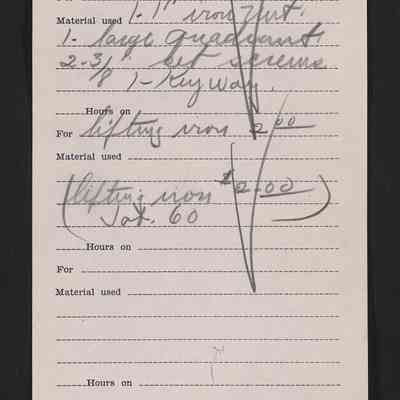 Material used 1.1" iron
1- large quadrant.
2-3/8" set screws
1- Key way.
Hours on
For lifting iron 2 00
Material used
(lifting iron $2.00)
Jot. 60
Hours on
For
Material used
Hours on